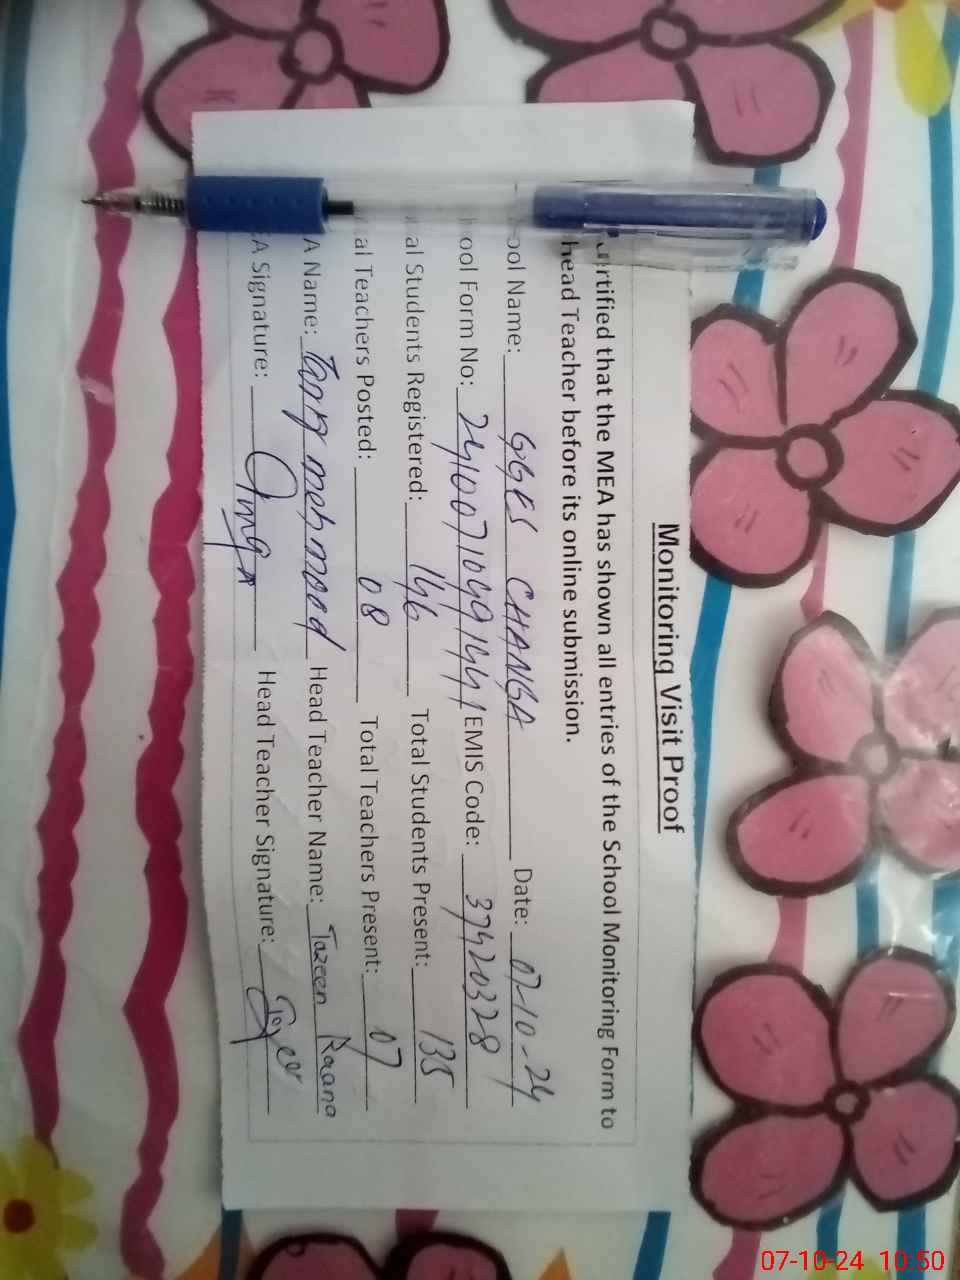 Monitoring Visit Proof
ertified that the MEA has shown all entries of the School Monitoring Form to
head Teacher before its online submission.
ool Name: GGES CHANGA Date: 07-10-24
ool Form No: EMIS Code: 37420328
al Students Registered: 146 Total Students Present: 135
al Teachers Posted: 08 Total Teachers Present: 07
A Name: Tariq mehmood Head Teacher Name: Tazeen Raana
A Signature: Head Teacher Signature:
07-10-24 10:50